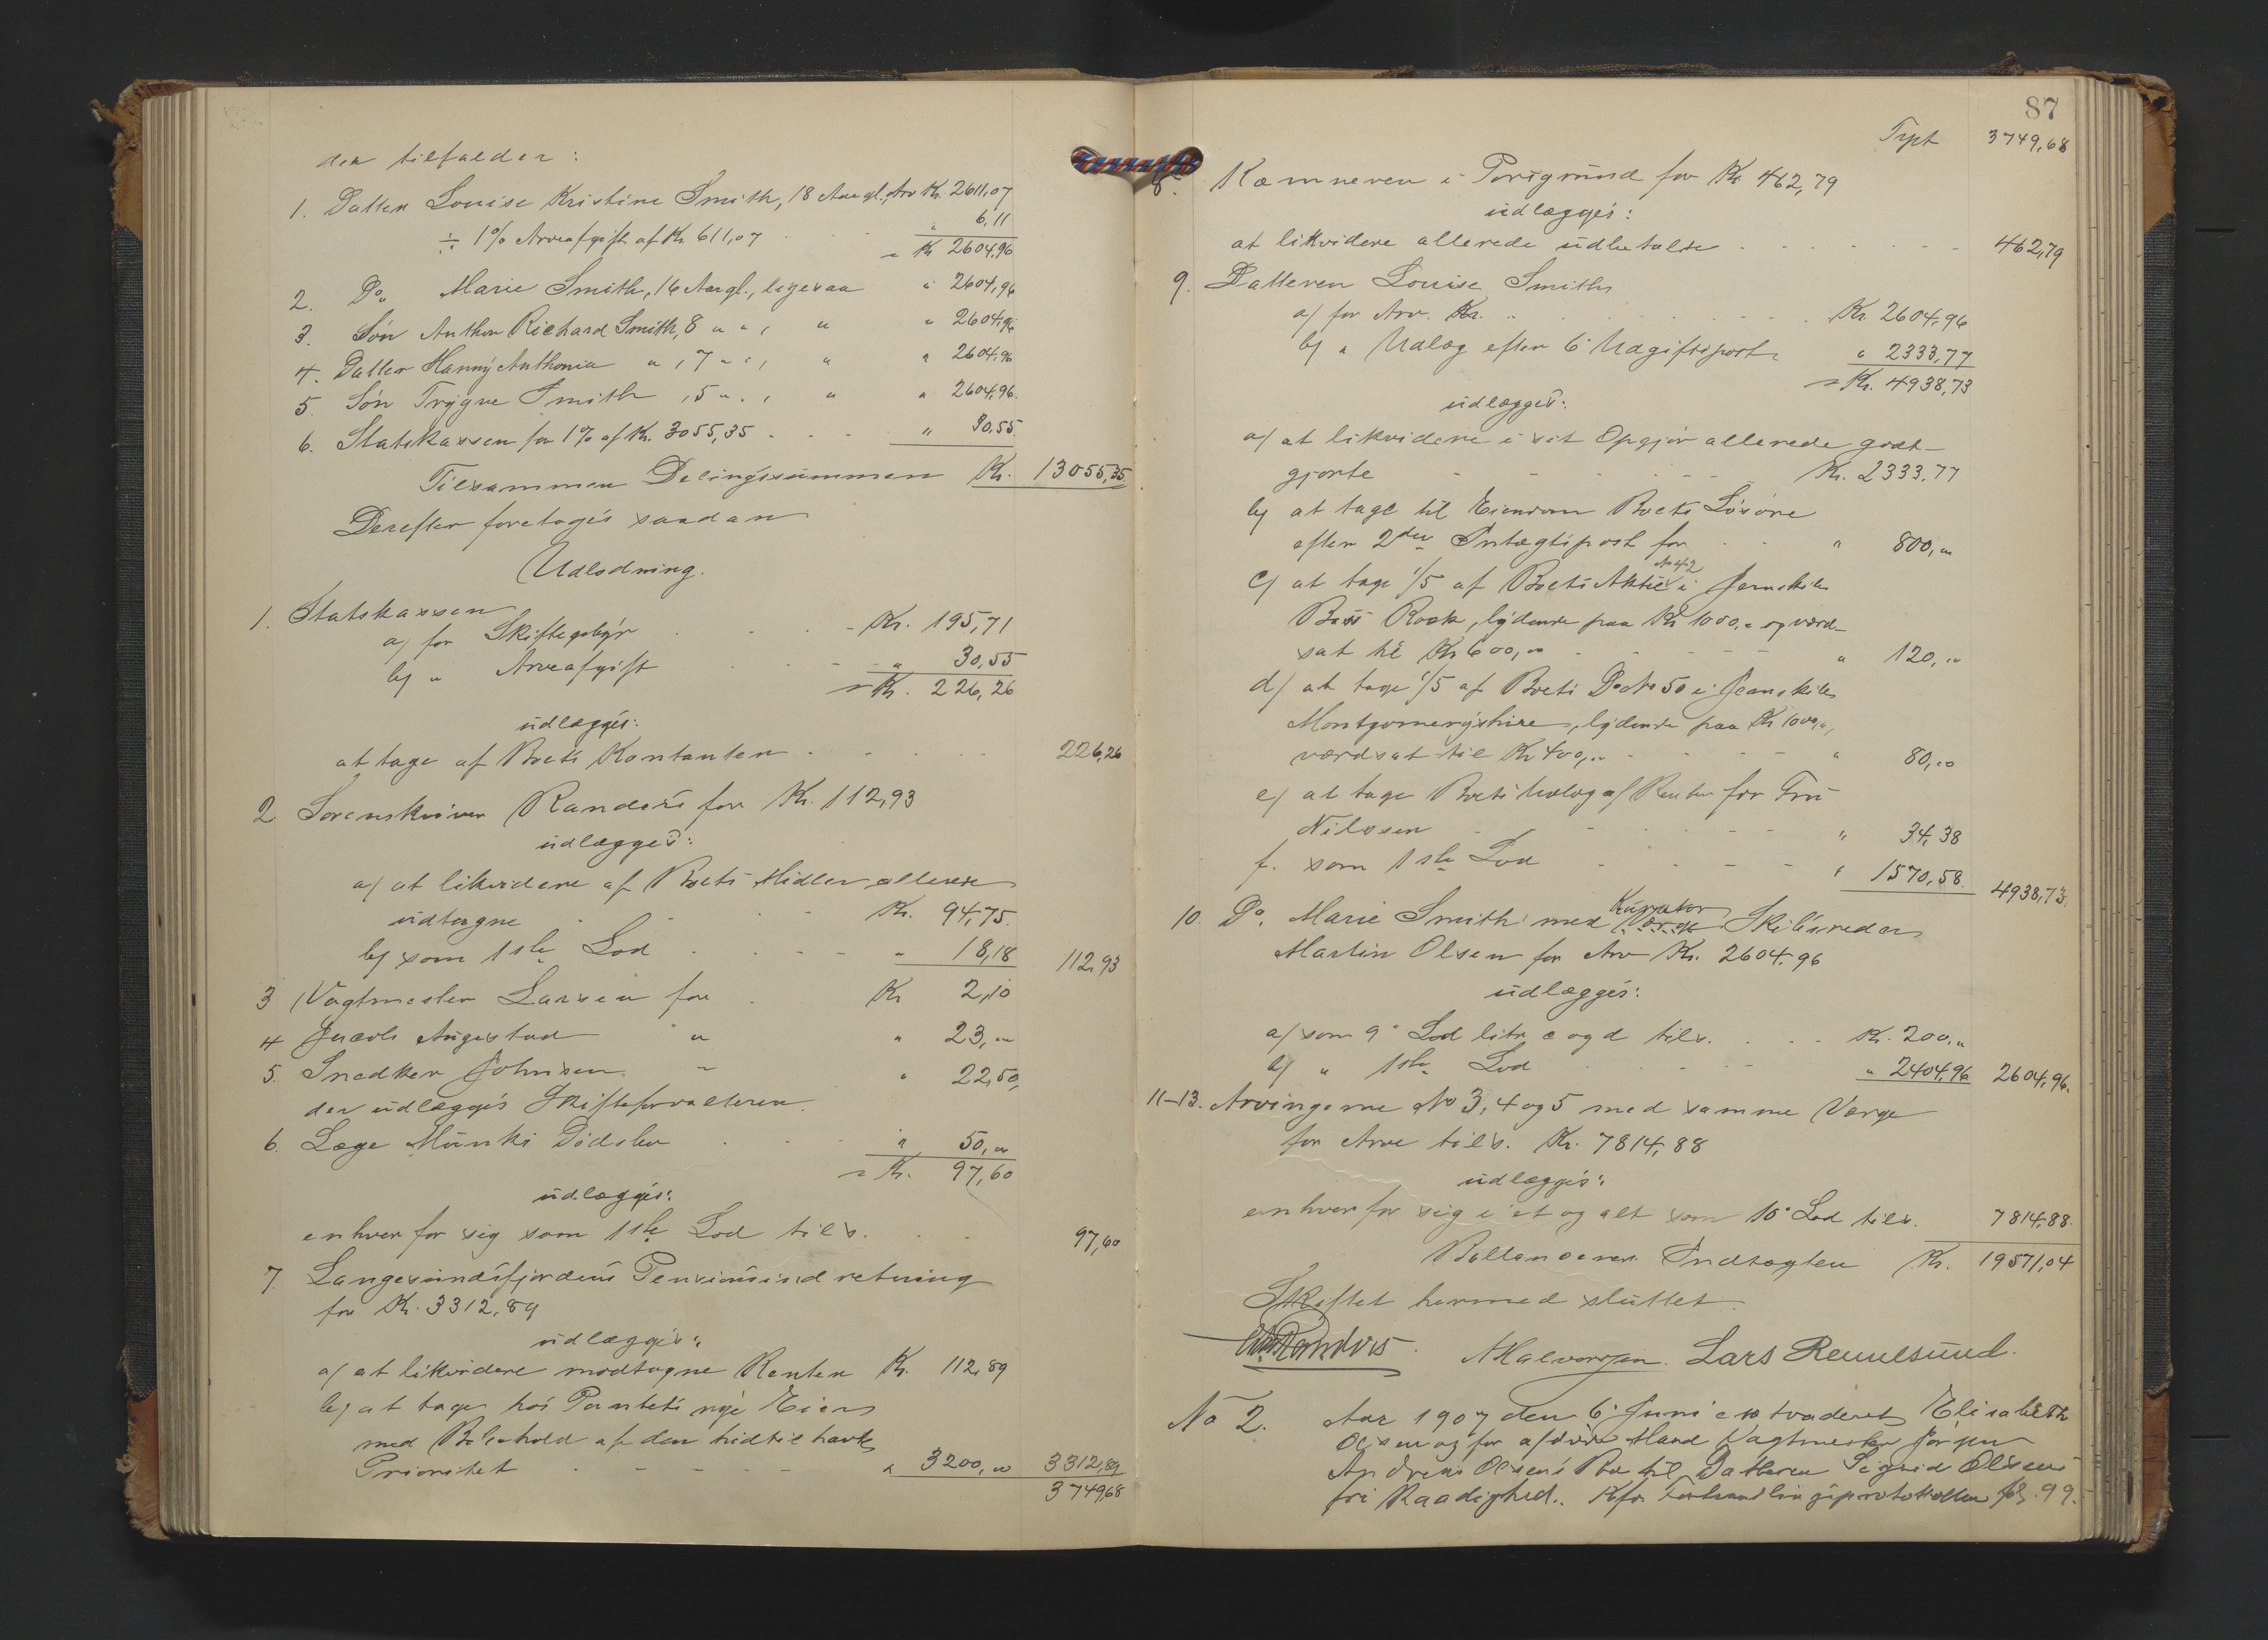 der tilfalder:
1. Datter Louise Kristine Smith, 18 Aar gl., Arv Kr. 2611,07
÷ 1% Arveafgift af Kr. 611,07 " 6,11
= Kr 2604,96
2. Do. Marie Smith, 16 Aar gl., ligesaa " 2604,96
3. Søn Anthon Richard Smith, 8 " " , " " 2604,96
4. Datter Hanny Anthonia " , 7 " " , " " 2604,96
5. Søn Trygve Smith , 5 " " , " " 2604,96.
6. Statskassen for 1% af Kr. 3055,35 . . . " 30,55.
Tilsammen Delingssummen Kr. 13055,35.
Derefter foretoges saadan
Udlodning.
1. Statskassen
a) for Skiftegebyr . . . Kr. 195,71
b) " Arveafgift . . . " 30,55
= Kr. 226,26
udlægges:
at tage af Boets Kontanter . . . . . 226,26
2 Sorenskriver Randers for Kr. 112,93
udlægges:
a) at likvidere af Boets Midler allerede
udtagne . . . . Kr. 94,75.
b) som 1ste Lod . . . . " 18,18 112,93
3 Vagtmester Larsen for . Kr 2,10
4 Jacob Augestad " " 23,"
5. Snedker Johnsen " " 22,50,
der udlægges Skifteforvalteren.
6. Læge Munks Dødsbo . . . " 50,"
= Kr. 97,60
udlægges:
enhver for sig som 1ste Lod tils. . . 97,60
7. Langesundsfjordens Pensionsindretning
for Kr. 3312,89
udlægges:
a) at likvidere modtagne Renter Kr. 112,89
b) at tage hos Pantets nye Eier
med Beholdelse af den hidtil havte
Prioritet - - - - - " 3200,00 3312,89
3749,68
87
Trpt 3749,68
8. Kæmneren i Porsgrund for Kr. 462,79
udlægges:
at likvidere allerede udbetalte . . . . . . . 462,79
9. Datteren Louise Smith
a) for Arv. Kr. " . . . . . . Kr. 2604,96
b) " Udlæg efter 6' Udgiftspost " 2333,77
= Kr. 4938,73
udlægges:
a) at likvidere i sit Opgjør allerede godt-
gjorte - - - - - Kr. 2333,77
b) at tage til Eiendom Boets Løsøre
efter 2den Indtægtspost for . . " 800,"
c) at tage 1/5 af Boets Aktie No 42 i Jernskibe
Bass Rock, lydende paa Kr 1000," og værd-
sat til Kr 600," - - - - - " 120,"
d) at tage 1/5 af Boets Do No 50 i Jernskibe
Montgomeryshire, lydende paa Kr 1000,",
værdsat til Kr 400," - - - - " 80,00
e) at tage Boets Renter for Fru
Nilssen - - - - - " 34,38
f. som 1ste Lod - - - - - " 1570,58. 4938,73.
10. Do. Marie Smith med Kurator Skibsreder
Martin Olsen for Arv Kr. 2604,96
udlægges:
a) som 9' Lod litr c og d tils. . . . Kr. 200,"
b) " 1ste Lod . . . . . " 2404,96 2604,96.
11-13. Arvingerne No 3, 4 og 5 med samme Værge
for Arv tils. Kr. 7814,88
udlægges:
enhver for sig i et og alt som 10' Lod tils. 7814,88.
Ballancerer Indtægten Kr. 19571,04
Skiftet hermed sluttet.
Randers. AHalvorsen. Lars Reuelsund.
No 2. Aar 1907 den 6' Juni extraderet Elisabeth
Olsen og før afdøde Mand Vagtmester Jørgen
Andreas Olsens Bo til Datteren Sigrid Olsens
fri Raadighed. Kfr. Forhandlingsprotokollen fol. 99.